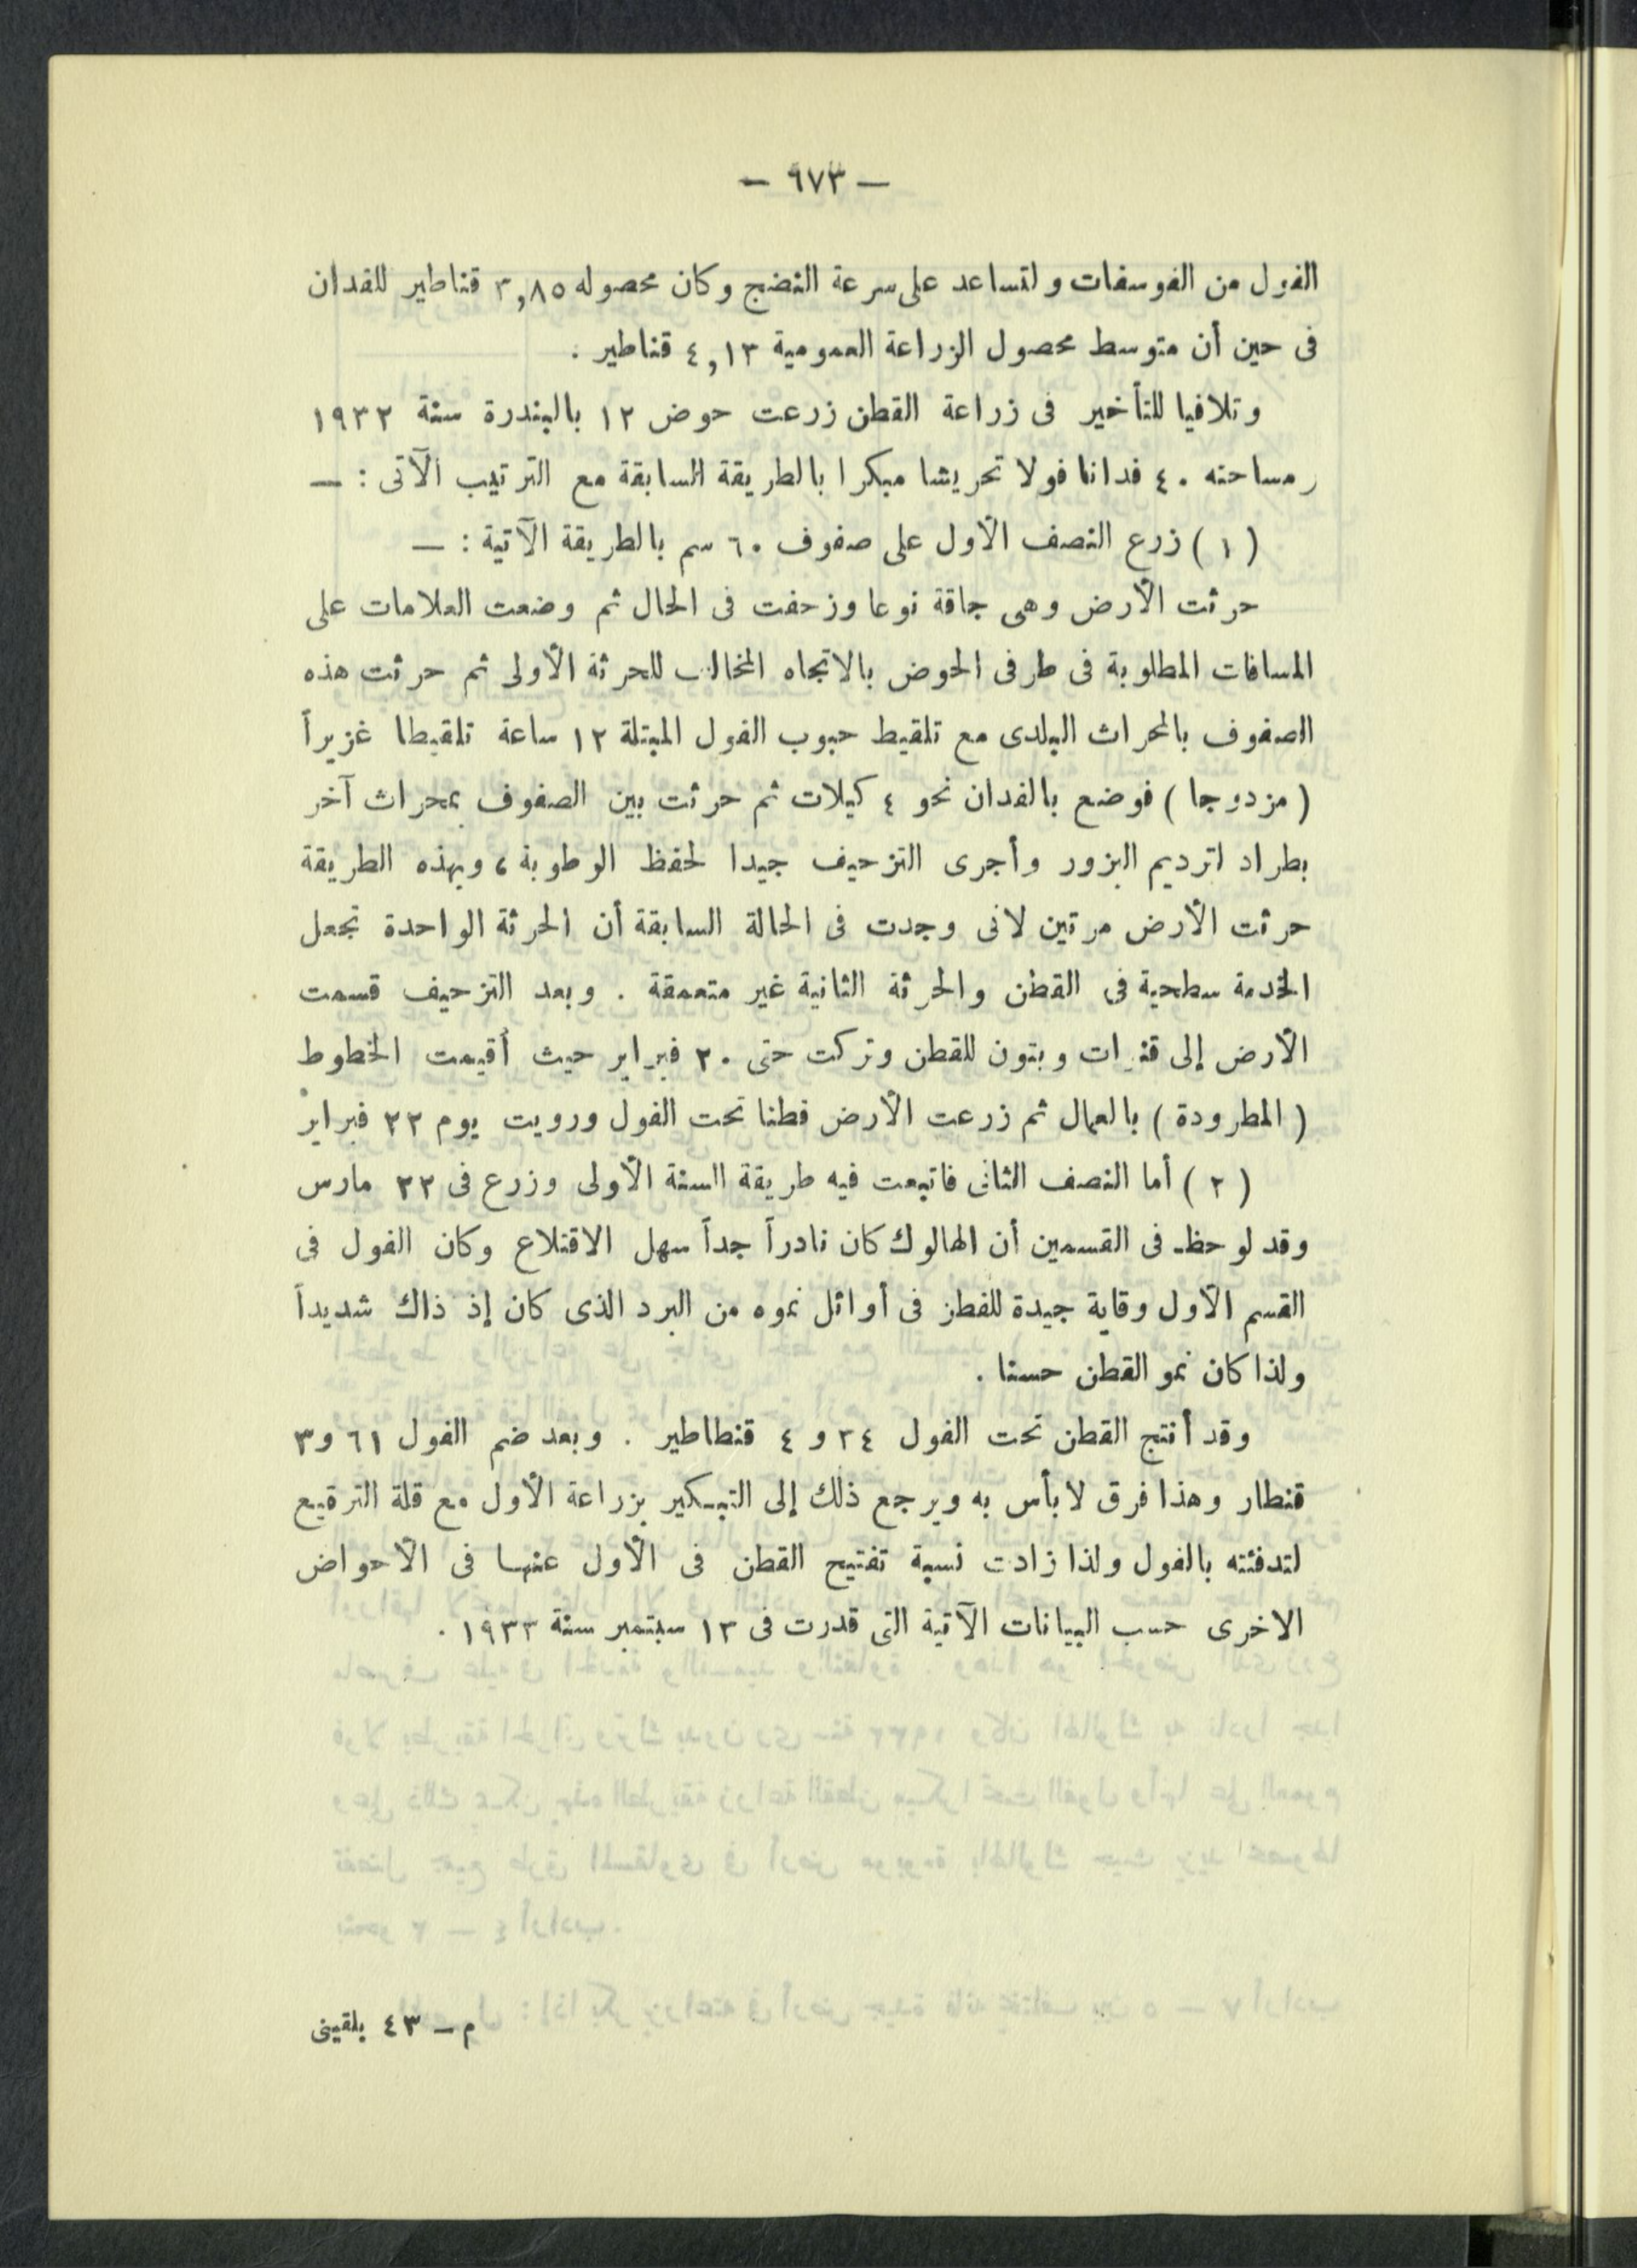 — ٦٧٣ —
الفول من الفوسفات ولتساعد على سرعة النضج وكان محصوله ٣,٨٥ قناطير للفدان
فى حين أن متوسط محصول الزراعة العمومية ٤,١٣ قناطير .
وتلافيا للتأخير فى زراعة القطن زرعت حوض ١٢ بالبندرة سنة ١٩٣٢
ومساحته ٤٠ فدانا فولا تحريشا مبكرا بالطريقة السابقة مع الترتيب الآتى : —
( ١ ) زرع النصف الأول على صفوف ٦٠ سم بالطريقة الآتية : —
حرثت الأرض وهى جافة نوعا وزحفت فى الحال ثم وضعت العلامات على
المسافات المطلوبة فى طرفى الحوض بالاتجاه المخالف للحرثة الأولى ثم حرثت هذه
الصفوف بالمحراث البلدى مع تلقيط حبوب الفول المبتلة ١٢ ساعة تلقيطا غزيراً
( مزدوجا ) فوضع بالفدان نحو ٤ كيلات ثم حرثت بين الصفوف بمحراث آخر
بطراد لترديم البزور وأجرى التزحيف جيدا لحفظ الوطوبة ، وبهذه الطريقة
حرثت الأرض مرتين لانى وجدت فى الحالة السابقة أن الحرثة الواحدة تجعل
الخدمة سطحية فى القطن والحرثة الثانية غير متعمقة . وبعد التزحيف قسمت
الأرض إلى قنوات وبتون للقطن وتركت حتى ٢٠ فبراير حيث أقيمت الخطوط
( المطرودة ) بالعمال ثم زرعت الأرض قطنا تحت الفول ورويت يوم ٢٢ فبراير
( ٢ ) أما النصف الثانى فاتبعت فيه طريقة السنة الأولى وزرع فى ٢٢ مارس
وقد لوحظ فى القسمين أن الهالوك كان نادراً جداً سهل الاقتلاع وكان الفول فى
القسم الأول وقاية جيدة للقطن فى أوائل نموه من البرد الذى كان إذ ذاك شديداً
ولذا كان نمو القطن حسنا .
وقد أنتج القطن تحت الفول ٢٤ و ٤ قنطاطير . وبعد ضم الفول ٦١ و٣
قنطار وهذا فرق لا بأس به ويرجع ذلك إلى التبكير بزراعة الأول مع قلة الترقيع
لتدفئته بالفول ولذا زادت نسبة تفتيح القطن فى الأول عنها فى الأحواض
الاخرى حسب البيانات الآتية التى قدرت فى ١٣ سبتمبر سنة ١٩٣٣ .
م — ٤٣ بلقينى